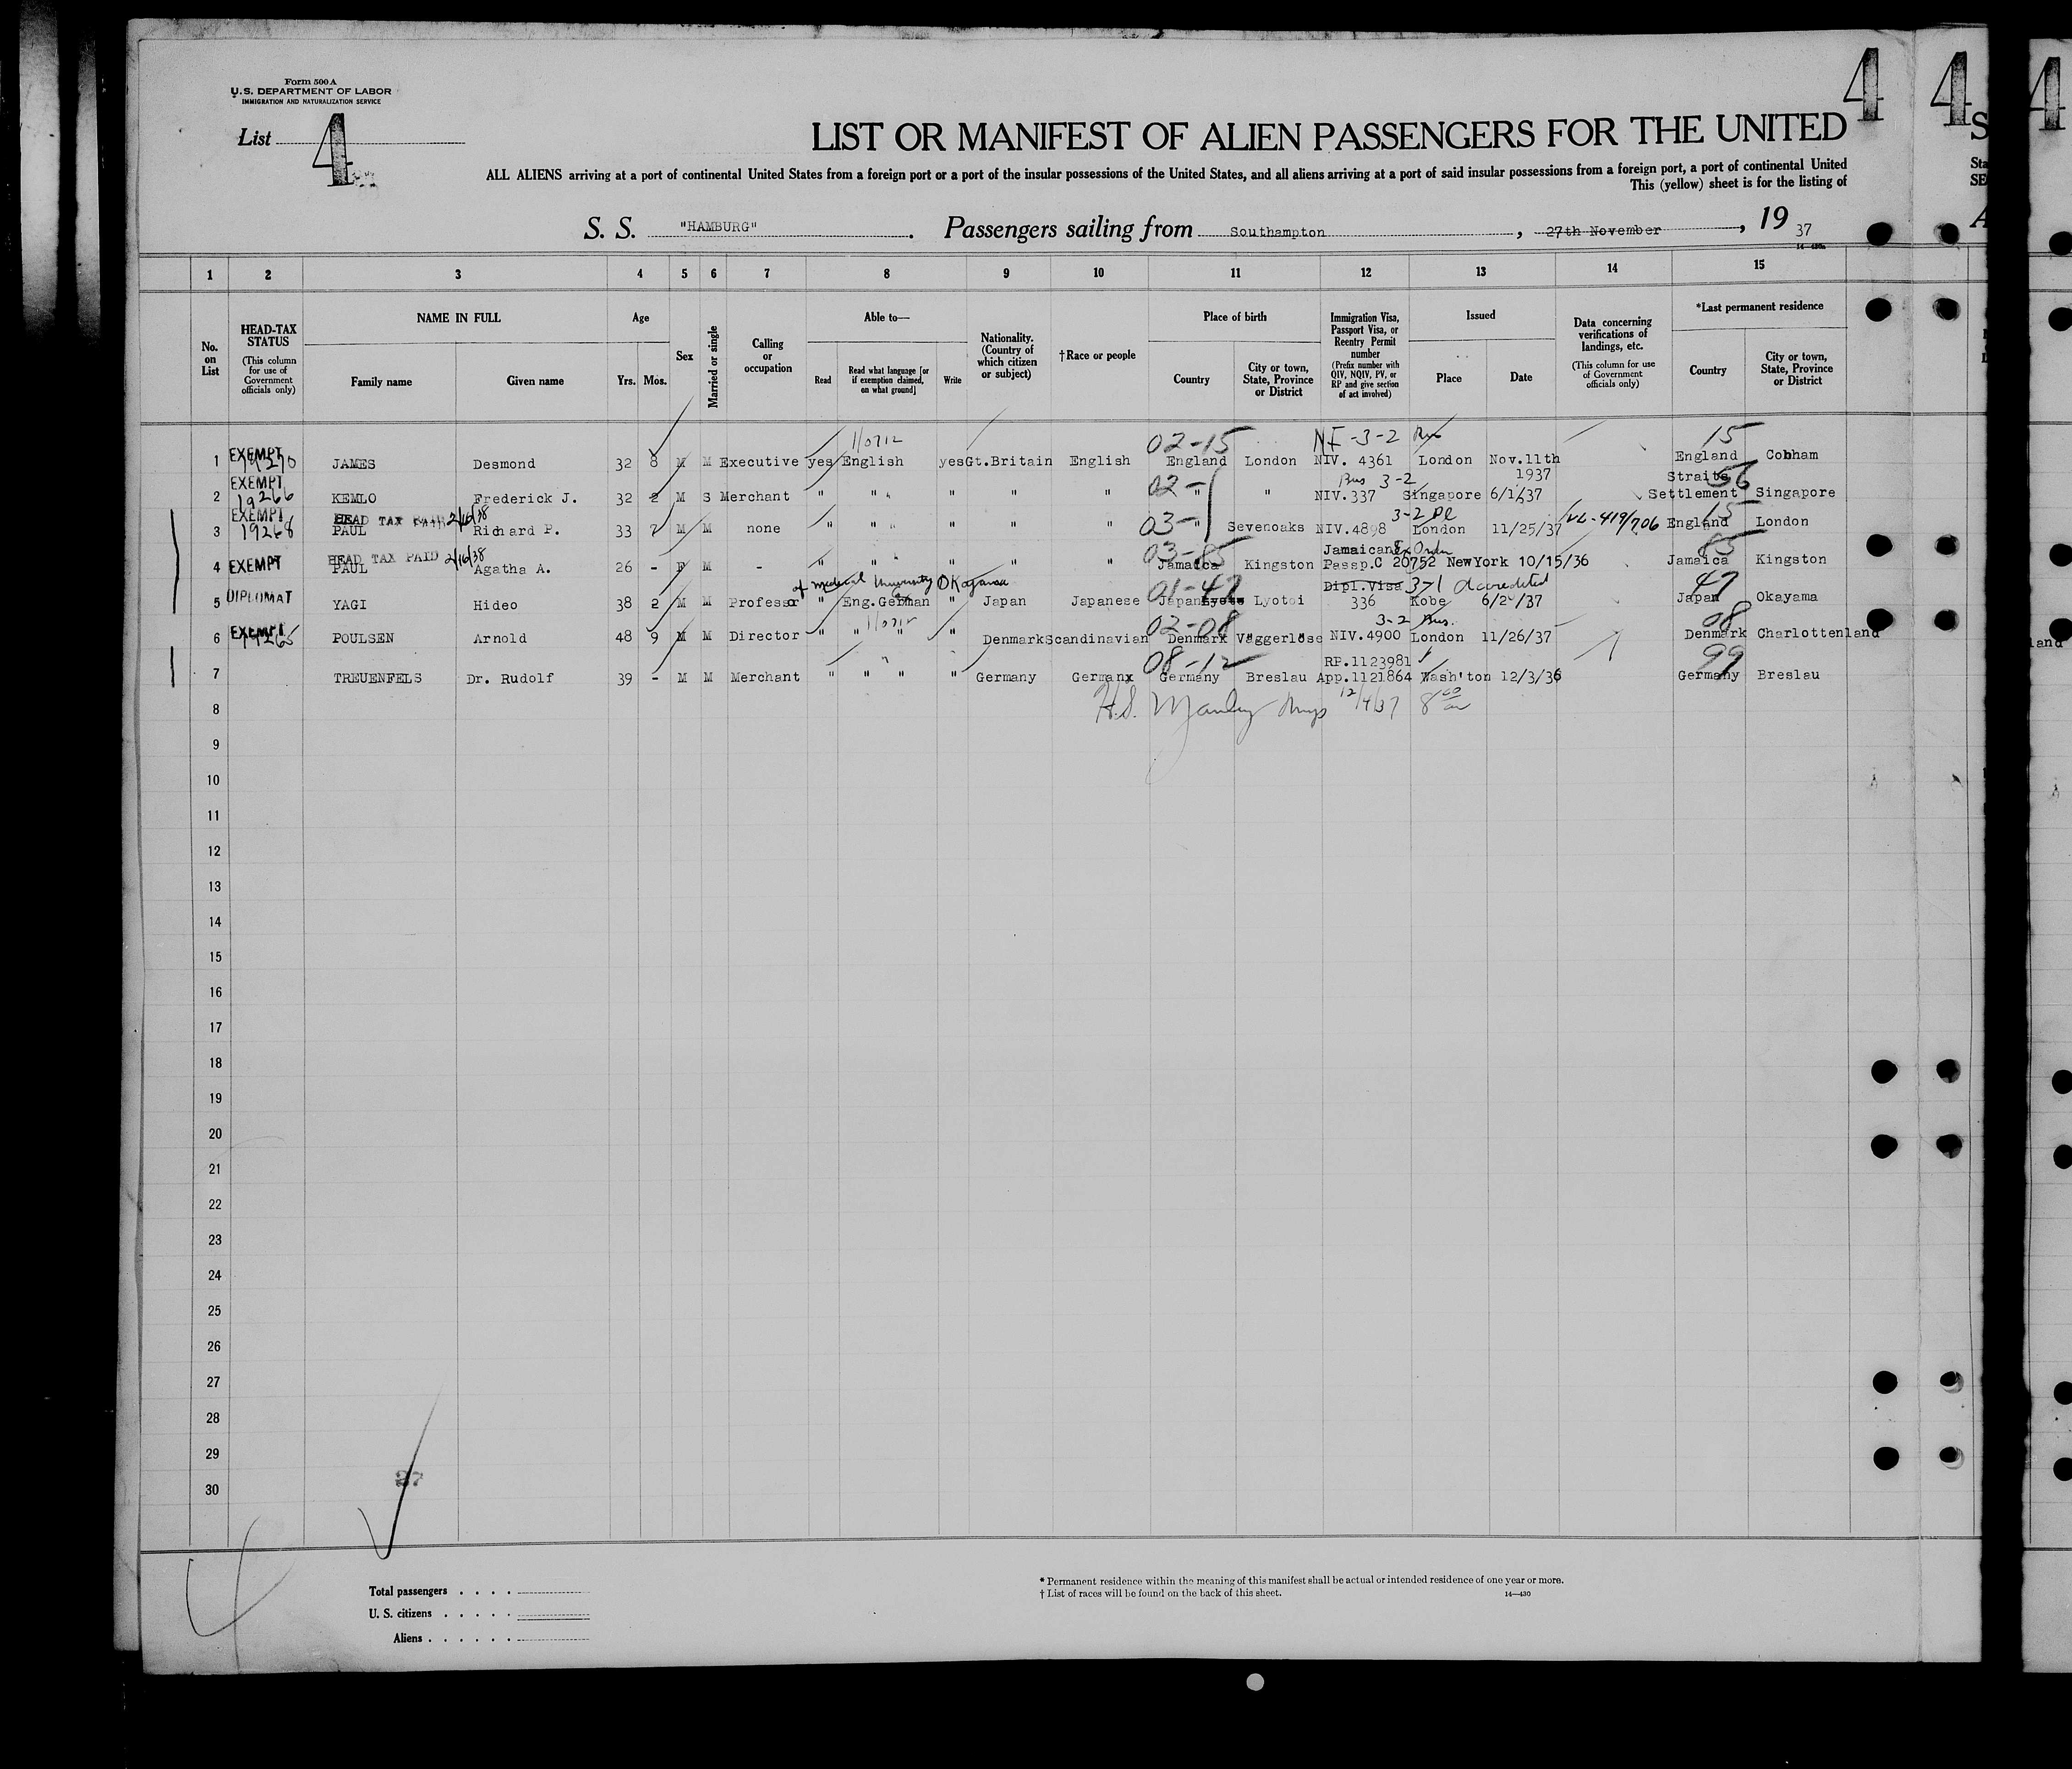 Form 500 A
U.S. DEPARTMENT OF LABOR
IMMIGRATION AND NATURALIZATION SERVICE
List 4
4 4 4
LIST OR MANIFEST OF ALIEN PASSENGERS FOR THE UNITED
ALL ALIENS arriving at a port of continental United States from a foreign port or a port of the insular possessions of the United States, and all aliens arriving at a port of said insular possessions from a foreign port, a port of continental United
This (yellow) sheet is for the listing of
S. S. "HAMBURG". Passengers sailing from Southampton, 27th November, 19 37
1 2 3 4 5 6 7 8 9 10 11 12 13 14 15
No. on List
HEAD-TAX STATUS (This column for use of Government officials only)
NAME IN FULL
Family name Given name
Age
Yrs. Mos.
Sex
Married or single
Calling or occupation
Able to—
Read
Read what language [or if exemption claimed, on what ground]
Write
Nationality. (Country of which citizen or subject)
†Race or people
Place of birth
Country
City or town, State, Province or District
Immigration Visa, Passport Visa, or Reentry Permit number (Prefix number with QIV, NQIV, PV, or RP and give section of act involved)
Issued
Place Date
Data concerning verifications of landings, etc. (This column for use of Government officials only)
*Last permanent residence
Country
City or town, State, Province or District
02-15 3-2 15
1 EXEMPT 19270 JAMES Desmond 32 8 M M Executive yes English yes Gt.Britain English England London NIV. 4361 London Nov.11th 1937 England Cobham
02- Bus 3-2 56
2 EXEMPT 19266 KEMLO Frederick J. 32 2 M S Merchant " " " " " " " NIV.337 Singapore 6/1/37 Straits Settlement Singapore
HEAD TAX PAID 2/16/38 03- 3-2 Pl 15
3 EXEMPT 19268 PAUL Richard P. 33 7 M M none " " " " " " Sevenoaks NIV.4898 London 11/25/37 VL-419/706 England London
HEAD TAX PAID 2/16/38 03-85 Jamaican 85
4 EXEMPT PAUL Agatha A. 26 - F M - " " " " " Jamaica Kingston Passp.C 20752 NewYork 10/15/36 Jamaica Kingston
of Medical University Okayama 01-47 Dipl.Visa 3-1 Accredited 47
5 DIPLOMAT YAGI Hideo 38 2 M M Professor " Eng.German " Japan Japanese Japan Lyotoi 336 Kobe Japan Okayama
02-08 3-2 Bus. 08
6 EXEMPT 19265 POULSEN Arnold 48 9 M M Director " " " " Denmark Scandinavian Denmark Väggerløse NIV.4900 London 11/26/37 Denmark Charlottenland
08-12 RP.1123981 99
7 TREUENFELS Dr. Rudolf 39 - M M Merchant " " " " Germany German Germany Breslau App.1121864 Wash'ton 12/3/36 Germany Breslau
8 H.S. Manley 12/4/37
9
10
11
12
13
14
15
16
17
18
19
20
21
22
23
24
25
26
27
28
29
30
27
Total passengers
U. S. citizens
Aliens
* Permanent residence within the meaning of this manifest shall be actual or intended residence of one year or more.
† List of races will be found on the back of this sheet. 14—430